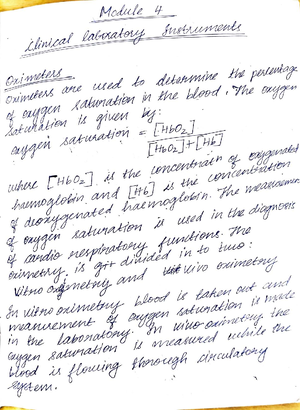 Module 4
Clinical laboratory Instruments
Oximeters
Oximeters are used to determine the percentage
of oxygen saturation in the blood. The oxygen
saturation is given by:
oxygen saturation = [HbO2]
[HbO2]+[Hb]
where [HbO2] is the concentratn of oxygenated
haemoglobin and [Hb] is the concentration
of deoxygenated haemoglobin. The measuremen
of oxygen saturation is used in the diagnosis
of cardio respiratory functions. The
oximetry is divided in to two:
Vitro oximetry and vivo oximetry
In vitro oximetry blood is taken out and
measurement of oxygen saturation is made
in the laboratory. In vivo-oximetry the
oxygen saturation is measured while the
blood is flowing thorough circulatory
system.